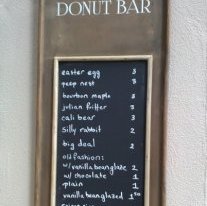 DONUT BAR
easter egg 3
peep nest 3
bourbon maple 3
julian fritter 3
cali bear 3
silly rabbit 2
big deal 2
old fashion:
w/vanilla bean glaze 2
w/ chocolate 1
plain 1
vanilla bean glazed 1.50